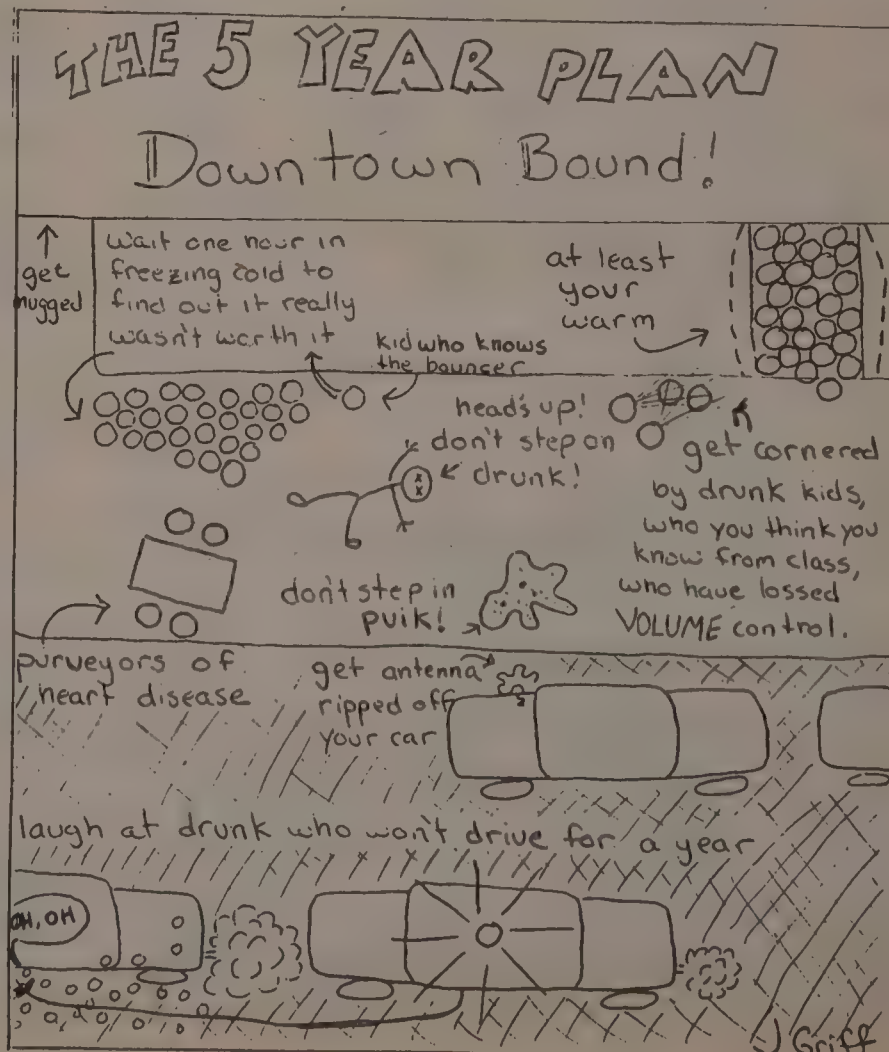 THE 5 YEAR PLAN
Downtown Bound!
get
mugged
wait one hour in
freezing cold to
find out it really
wasn't worth it
at least
your
warm
kid who knows
the bouncer
head's up!
don't step on
drunk!
get cornered
by drunk kids,
who you think you
know from class,
who have lossed
VOLUME control.
don't step in
puik!
purveyors of
heart disease
get antenna
ripped off
your car
laugh at drunk who won't drive for a year
OH, OH
Griff